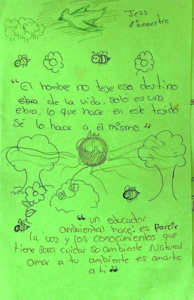 Jess
4° semestre
"El hombre no teje esa destino
ebra de la vida. solo es una
ebra, lo que hace en este tejido
se lo hace a él mismo"
"un educador
ambiental hace: es
la voz y los conocimientos que
tiene para cuidar su ambiente Natural
amar a tu ambiente es amarte
a ti"